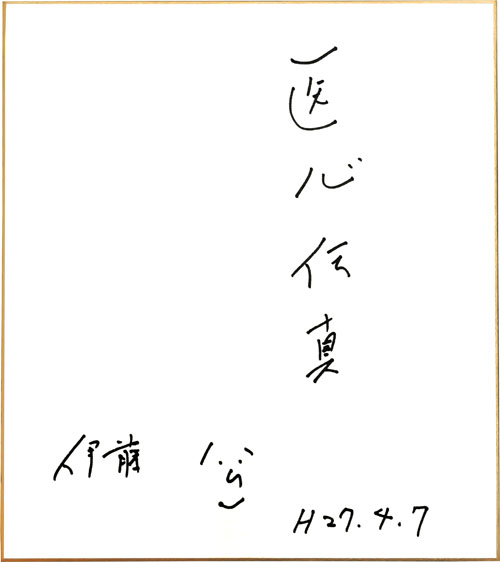 医心伝真
伊藤
H27.4.7